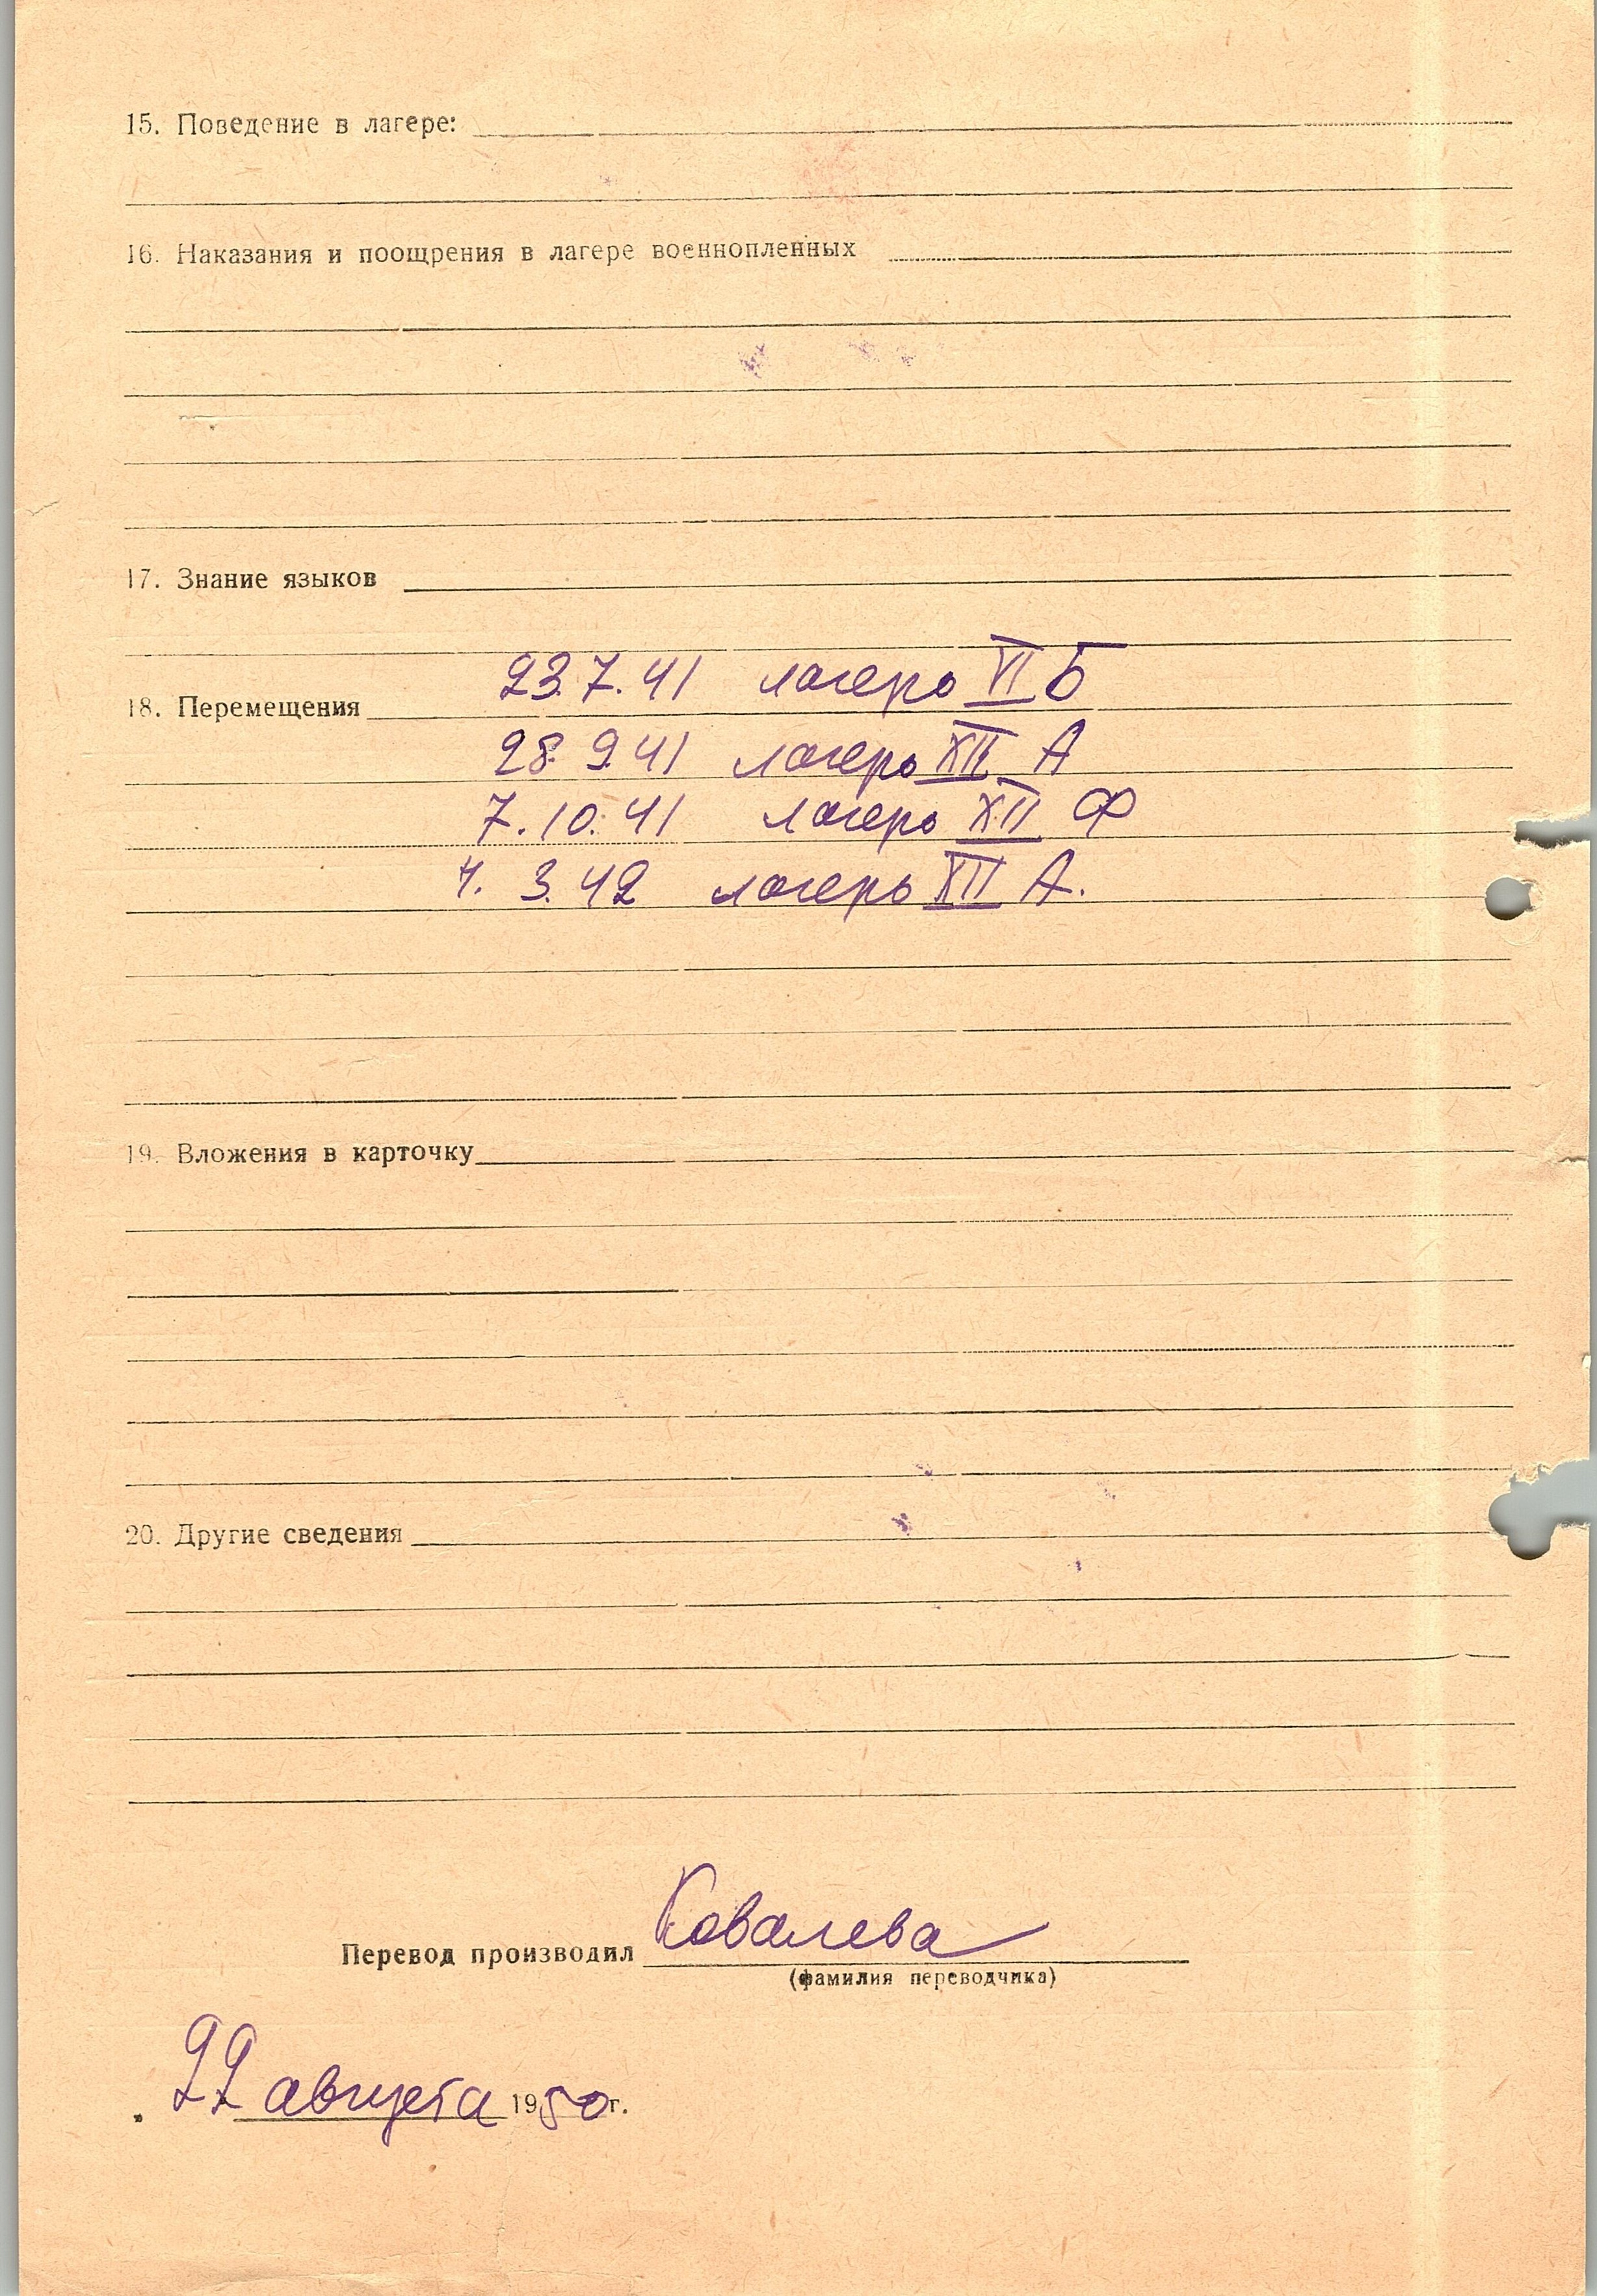 15. Поведение в лагере:
16. Наказания и поощрения в лагере военнопленных
17. Знание языков
23.7.41 лагерь VI Б
18. Перемещения
28.9.41 лагерь XII А
7.10.41 лагерь XII Ф
4. 3.42 лагерь XII А.
19. Вложения в карточку
20. Другие сведения
Перевод производил Ковалева
(фамилия переводчика)
22 августа 1950г.